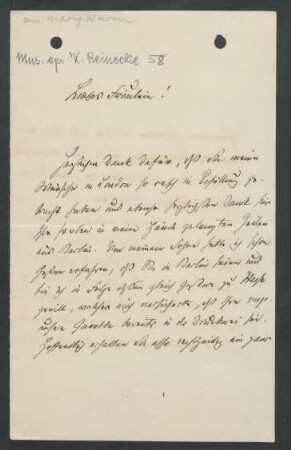 an Mary Wurm
Mus. ep. K. Reinecke 58
Liebes Fräulein!
Herzlichen Dank dafür, daß Sie meine
Wünsche in London so rasch in Erfüllung ge-
bracht haben und ebenso herzlichsten Dank für
Ihre soeben in meine Hände gelangten Zeilen
aus Berlin. Von meinem Sohne hatte ich schon
gestern erfahren, daß Sie in Berlin seien und
bin ich in Folge dessen gleich gestern zu
geeilt, welcher mich versicherte, daß Ihre
Gavotte bereits in der Druckerei sei.
Hoffentlich erhalten Sie also rechtzeitig ein paar